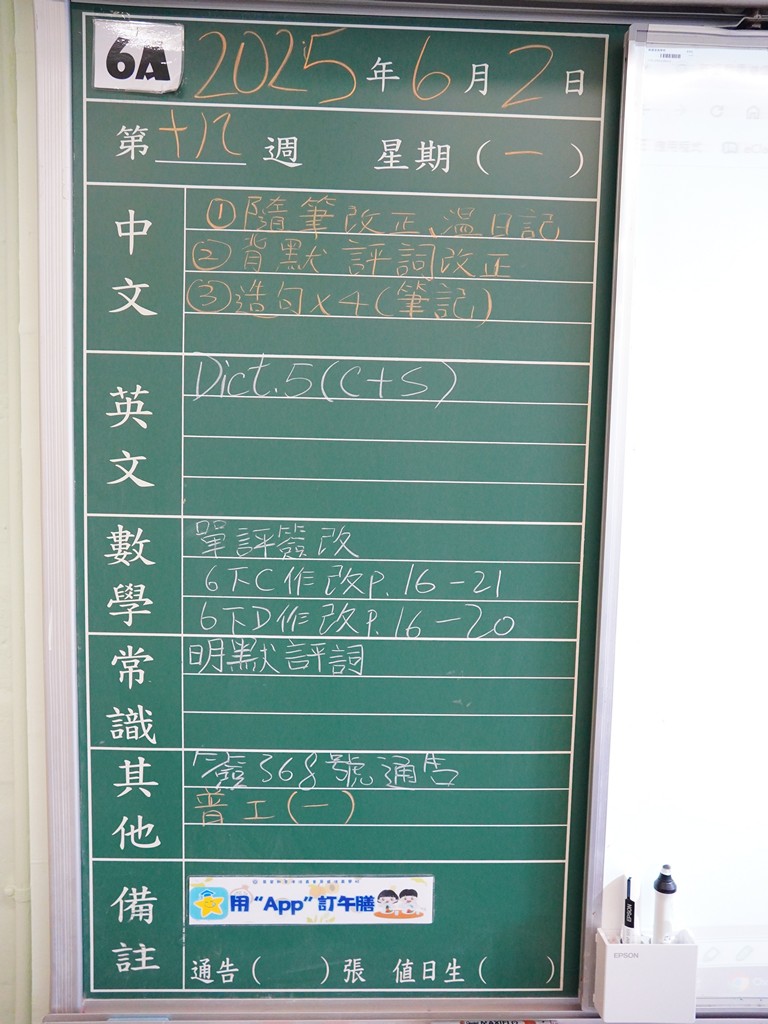 6A 2025年6月2日
第十八週 星期（一）
中文
①隨筆改正、溫日記
②背默 評詞改正
③造句x4(筆記)
英文
Dict.5(C+S)
數學
單評簽改
6下C作改P.16-21
6下D作改P.16-20
常識
明默評詞
其他
簽368號通告
普工(一)
備註
用“App”訂午膳
通告（ ）張 值日生（ ）
EPSON